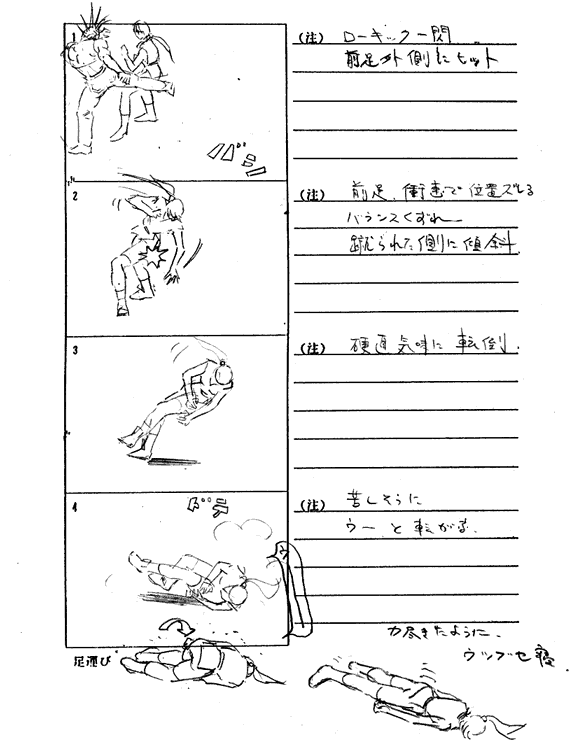 1
(注) ローキック一閃
前足外側にヒット
バシッ
2
(注) 前足、衝撃で位置ズレる
バランスくずれ
蹴られた側に傾斜
3
(注) 硬直気味に転倒.
4
ドテ
(注) 苦しそうに
ウーと転がる.
力尽きたように、
ウツブセ寝.
足運び